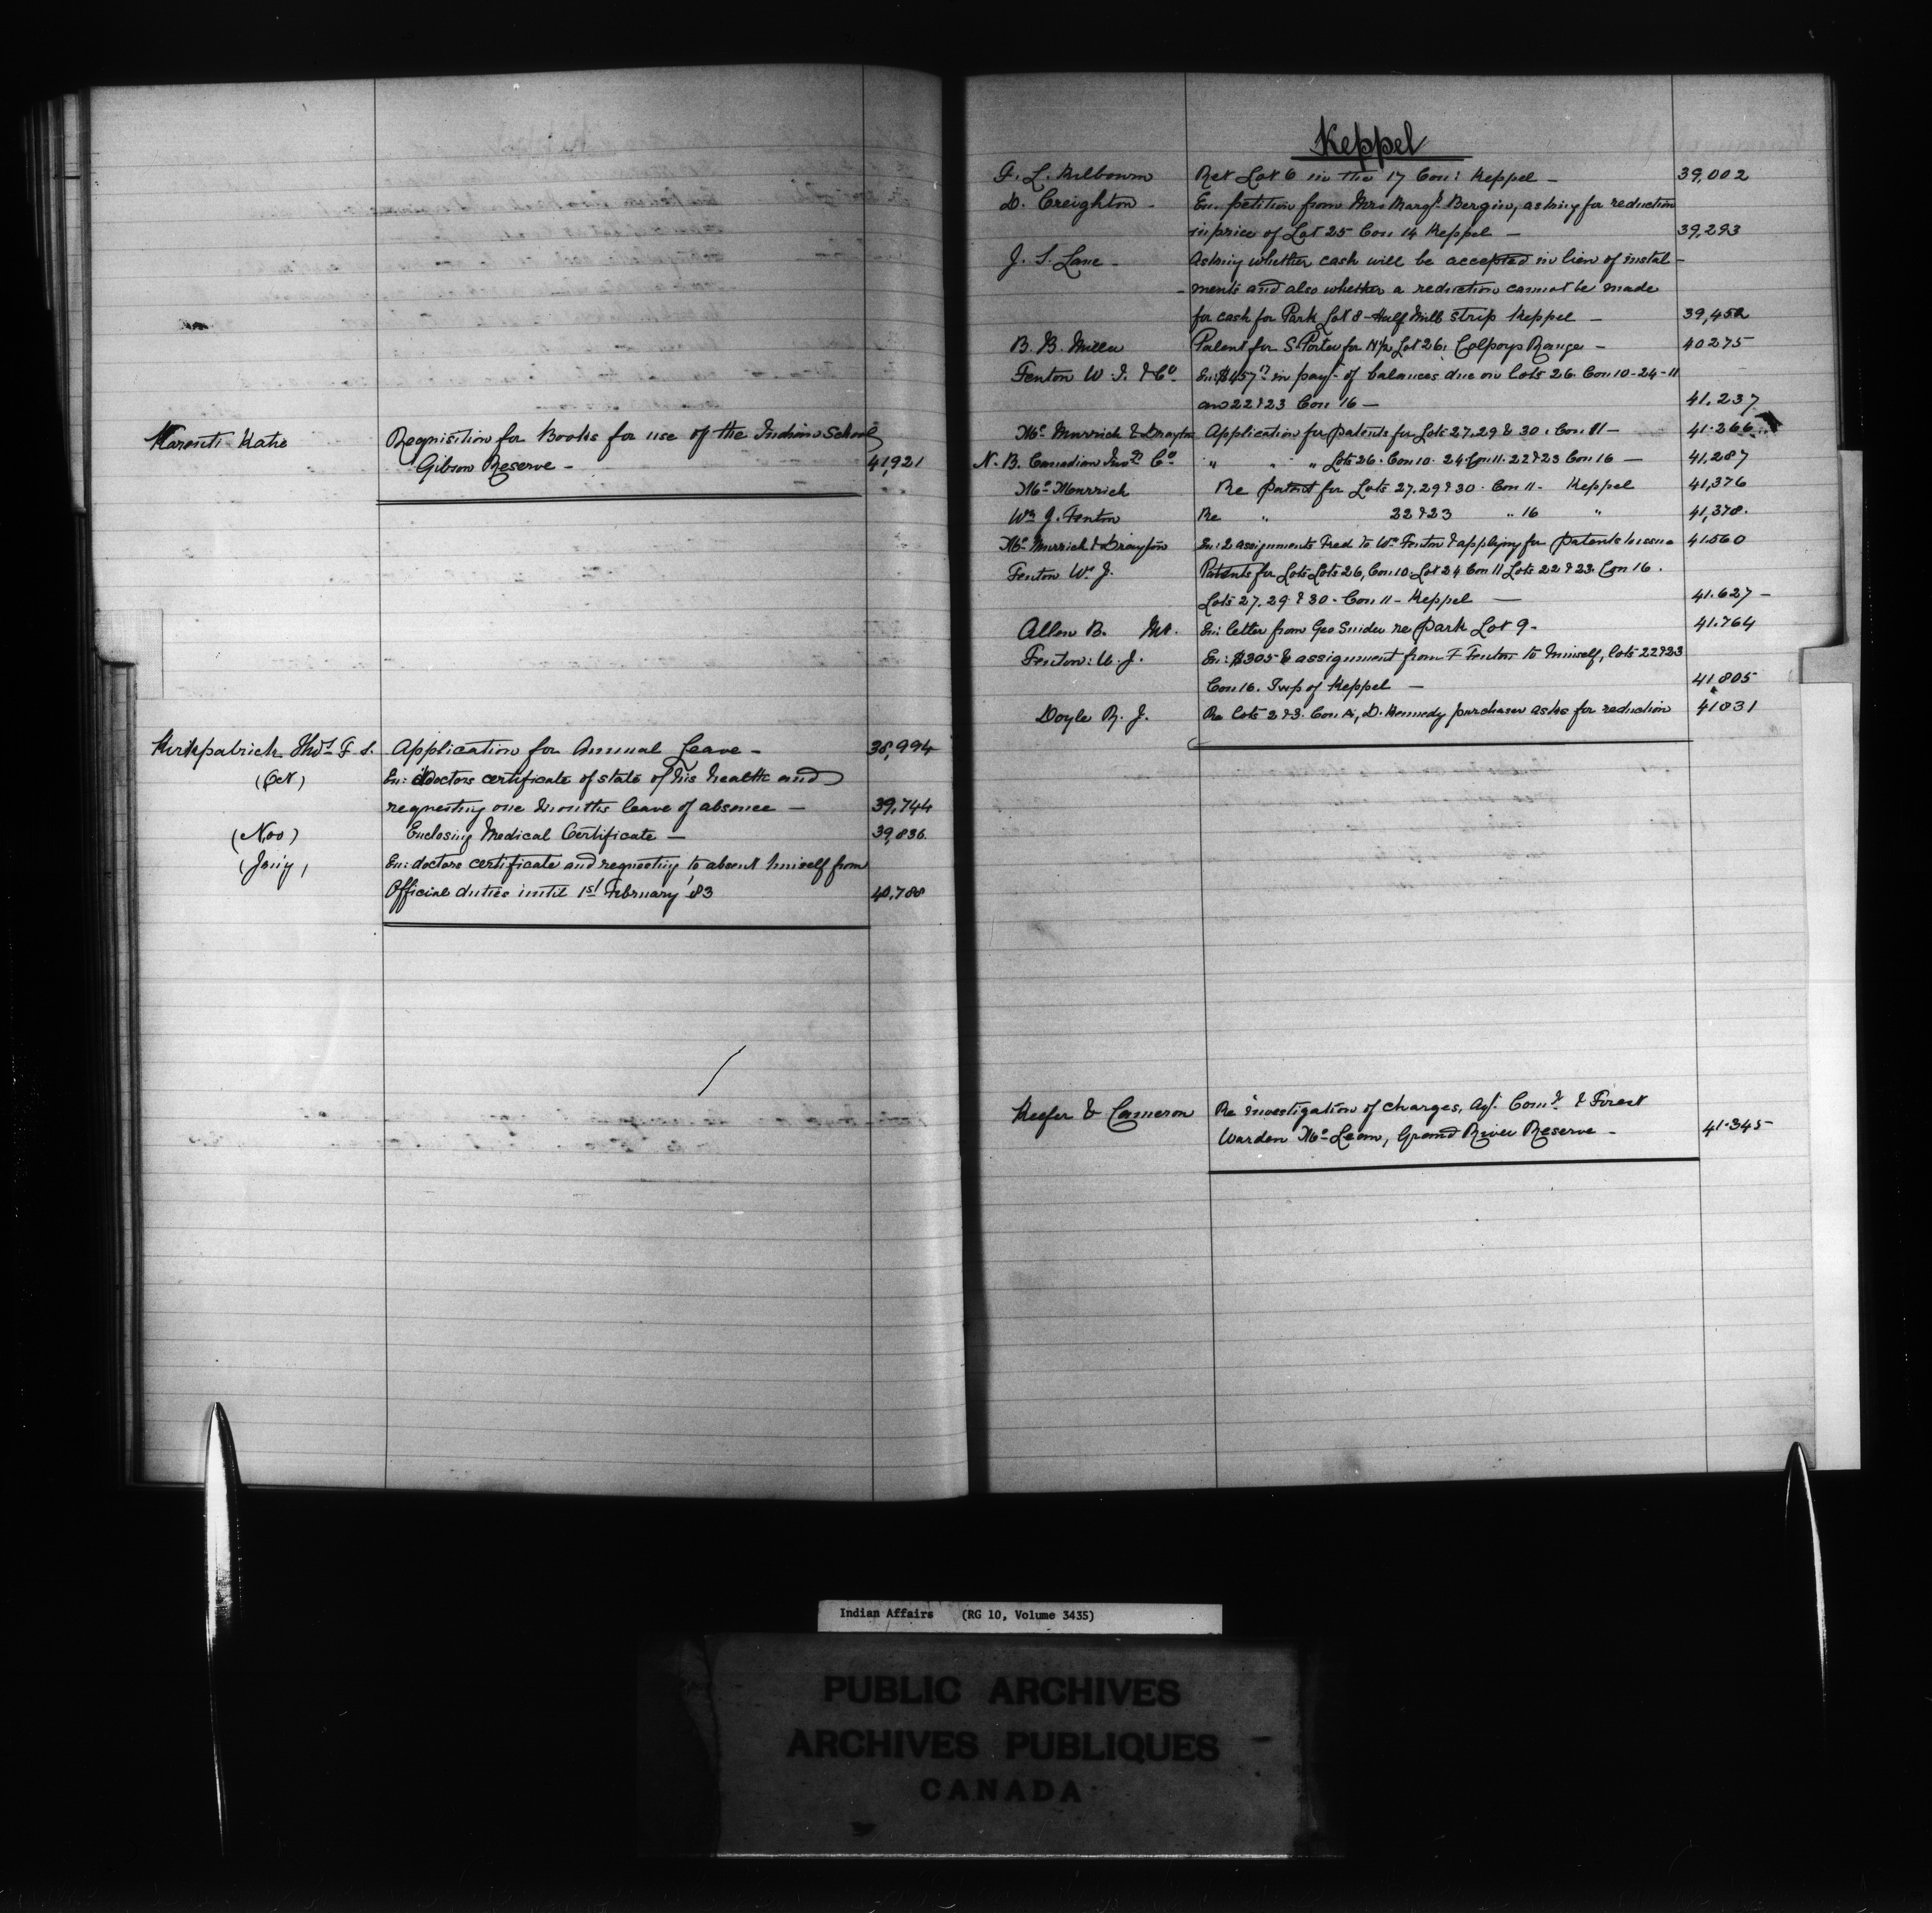 Karenti Katie Requisition for Books for use of the Indian School
Gibson Reserve - 41,921
Kirkpatrick Thos. F. S. Application for Annual Leave - 38,994
(Oct) En: doctors certificate of state of his health and
requesting one months leave of absence - 39,744
(Nov) Enclosing Medical Certificate - 39,836
(Jany) En: doctors certificate and requesting to absent himself from
Official duties until 1st February '83 40,788
Keppel
G. L. Milbourn Ret Lot 6 in the 17 Con: Keppel - 39,002
D. Creighton - En. petition from Mrs Margt. Bergin, asking for reduction
in price of Lot 25 Con 14 Keppel - 39,293
J. S. Lane - Asking whether cash will be accepted in lieu of instal-
-ments and also whether a reduction cannot be made
for cash for Park Lot 8 - Half Mile Strip Keppel - 39,452
B. B. Miller Patent for S. Porter for N½ Lot 26, Colpoys Range - 40275
Fenton W. J. & Co. En: $457 in payt. of balances due on lots 26. Con 10-24-11
and 22 & 23 Con 16 - 41.237
Mc Murrich & Drayton Application for patents for Lots 27, 29 & 30. Con. 11 - 41.266
N. B. Canadian Invt. Co. " " " Lots 26. Con 10. 24 Con 11. 22 & 23 Con 16 - 41,287
Mc Murrich Re Patent for Lots 27. 29 & 30. Con 11 - Keppel 41,376
Wm J. Fenton Re " 22 & 23 " 16 " 41,378.
Mc Murrich & Drayton En: 2 assignments Fred to Wm Fenton & applying for patents to issue 41560
Fenton Wm J. Patents for Lots Lots 26, Con 10. Lot 24 Con 11 Lots 22 & 23. Con 16.
Lots 27. 29 & 30. Con 11 - Keppel - 41.627 -
Allen B. En: letter from Geo Snider re Park Lot 9. 41.764
Fenton: W. J. En: $305 & assignment from F Fenton to himself, lots 22 & 23
Con 16. Twp of Keppel - 41805
Doyle R. J. Re lots 2 & 3. Con A, D. Kennedy purchaser asks for reduction 41831
Keefer & Cameron Re investigation of charges, agt. Comr. & Forest
Warden Mc Lean, Grand River Reserve - 41.345
Indian Affairs (RG 10, Volume 3435)
PUBLIC ARCHIVES
ARCHIVES PUBLIQUES
CANADA